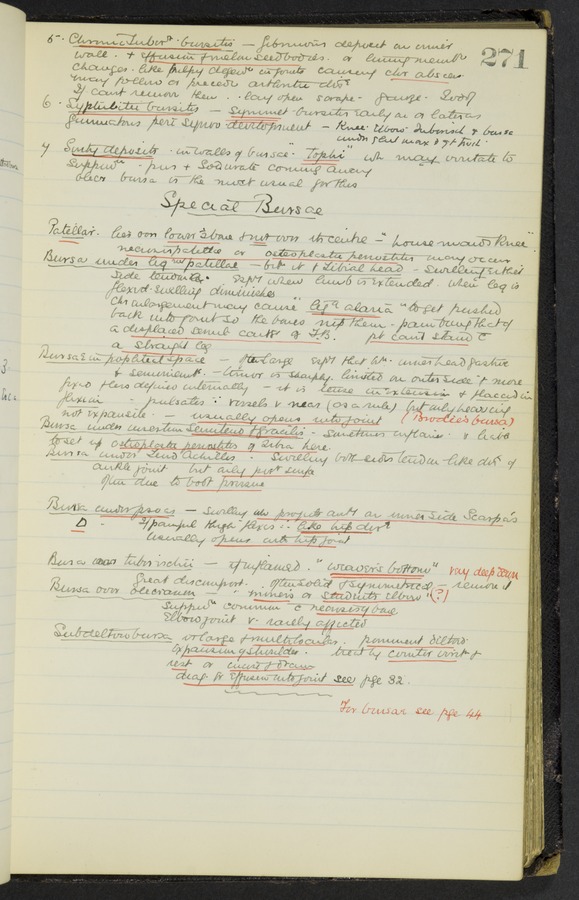 271
5. Chronic Tuberr bursitis – fibrinous deposit on inner
wall. + effusion & melon seed bodies. or lining membrn
changes like pulpy degenn in joints causing chr abscess
may follow or precede arthritic diss
If cant remove then . . lay open scrape - gauze -
6. Syphilitic bursitis – symmet bursitis early or later as
gummatous peri synov development – Knee. Elbow. Tuberisch & bursa
under glut max & gt troch
7 Gouty deposits. in walls of bursae "Tophi" wh may irritate to
Suppurn - pus & Sod urate coming away
olecr. bursa is the most usual for this
Special Bursae
Patellar. lies over lower & not over its centre – "housemaid's Knee"
necrosis patellae or osteoplastic periostitis may occur
Bursa under lig patellae – bet it & tibial head - swelling either
side tendon. espy when limb is extended. when leg is
flexed swelling diminishes
Chr enlargement may cause "lig alaria" to get pushed
back into joint so the bones nip them - pain being that of
a displaced semil cartlg of I.S. pt cant stand c
a straight leg
Bursae in popliteal space – enlarge espy that bn. inner head gastroc
& semimemb. – tumor is sharply limited on outer side & more
fixed & less defined internally – it is tense in extension & flaccid in
flexion - pulsates :: vessels v near (as a rule) but only heaving
not expansile - usually opens into joint (Brodie's bursa)
Bursa under insertion Semitend & gracilis - sometimes inflames. & liable
to set up osteoplastic periostitis of tibia here.
Bursa under Tend Achilles. Swelling both sides tendon - like dis of
ankle joint but only post surfce
often due to boot pressure
Bursa under psoas – Swelling wh projects antly on inner side Scarpa's
Δ - If painful thigh flexes :: like hip diss
usually opens into hip joint
Bursa over tuber ischii – if inflamed. "weaver's bottom" very deep down
Great discomfort. often solid & symmetrical – remove it
Bursa over olecranon – "miner's or students elbow" (?)
Suppurn common c necrosis of bone
Elbow joint v. rarely affected
Subdeltoid bursa v large & multilocular. prominent deltoid
expansion of shoulder. treat by counter irritn &
rest or incise & drain
diag fr effusion into joint see pge 32.
For bursae see pge 44